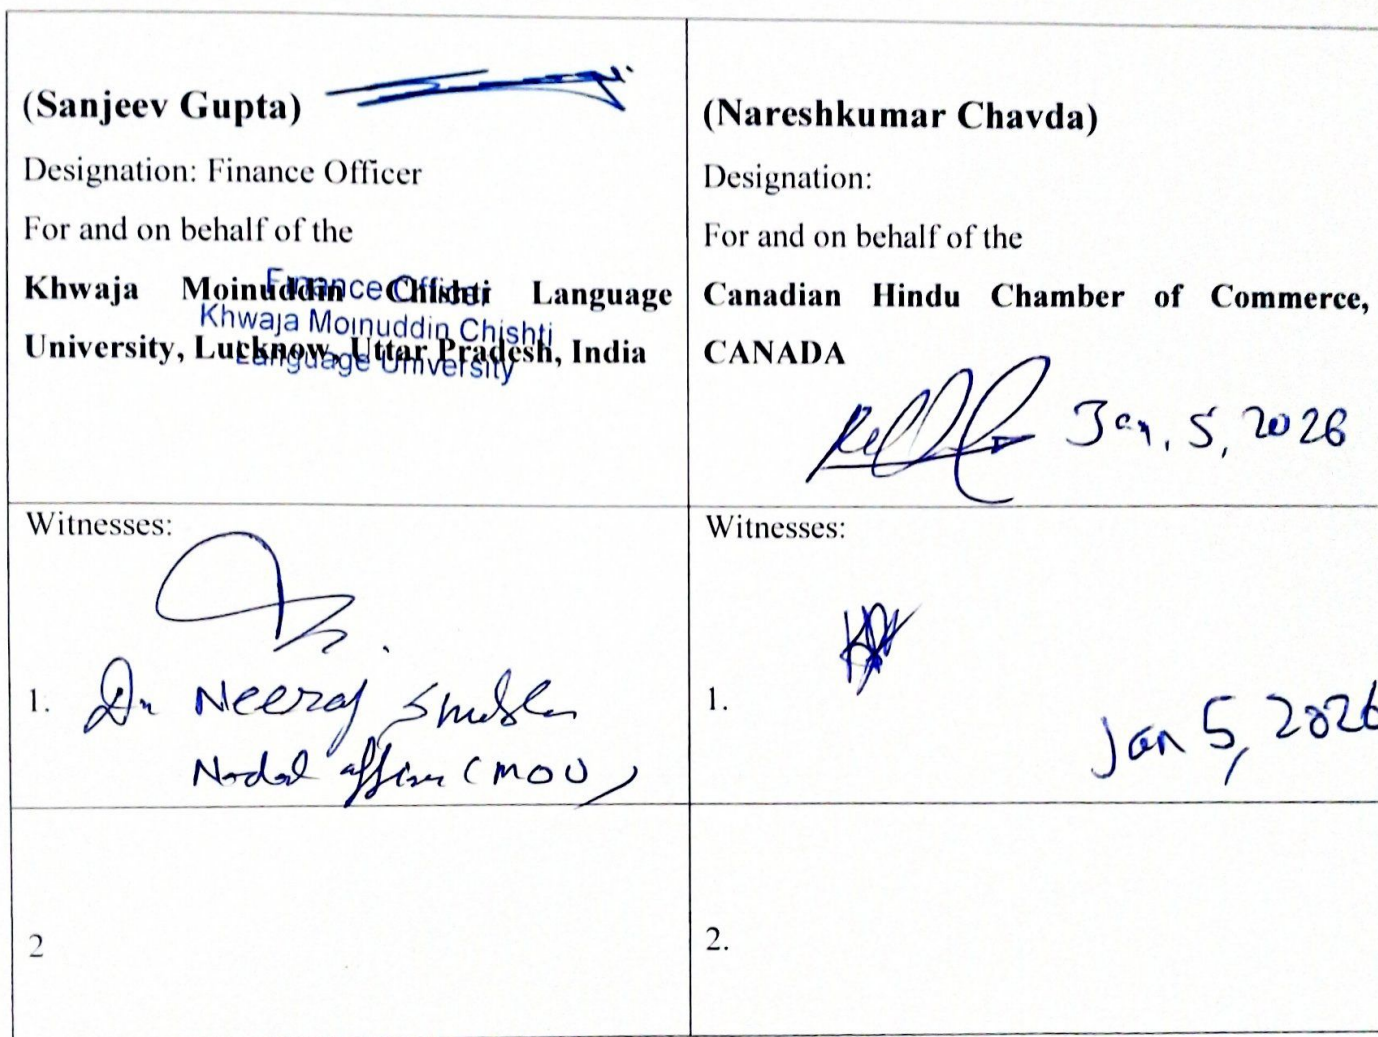 (Sanjeev Gupta)
Designation: Finance Officer
For and on behalf of the
Khwaja Moinuddin Chishti Language
University, Lucknow, Uttar Pradesh, India
Finance Officer
Khwaja Moinuddin Chishti
Language University
(Nareshkumar Chavda)
Designation:
For and on behalf of the
Canadian Hindu Chamber of Commerce,
CANADA
Jan, 5, 2026
Witnesses:
1. Dr Neeraj
Nodal (MOU)
Witnesses:
1.
Jan 5, 2026
2
2.